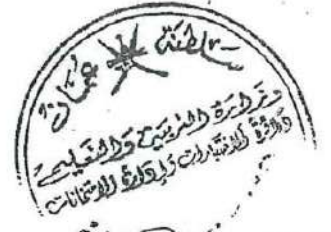 سلطنة عُمان
وزارة التربية والتعليم
دائرة الاختبارات وإدارة الامتحانات